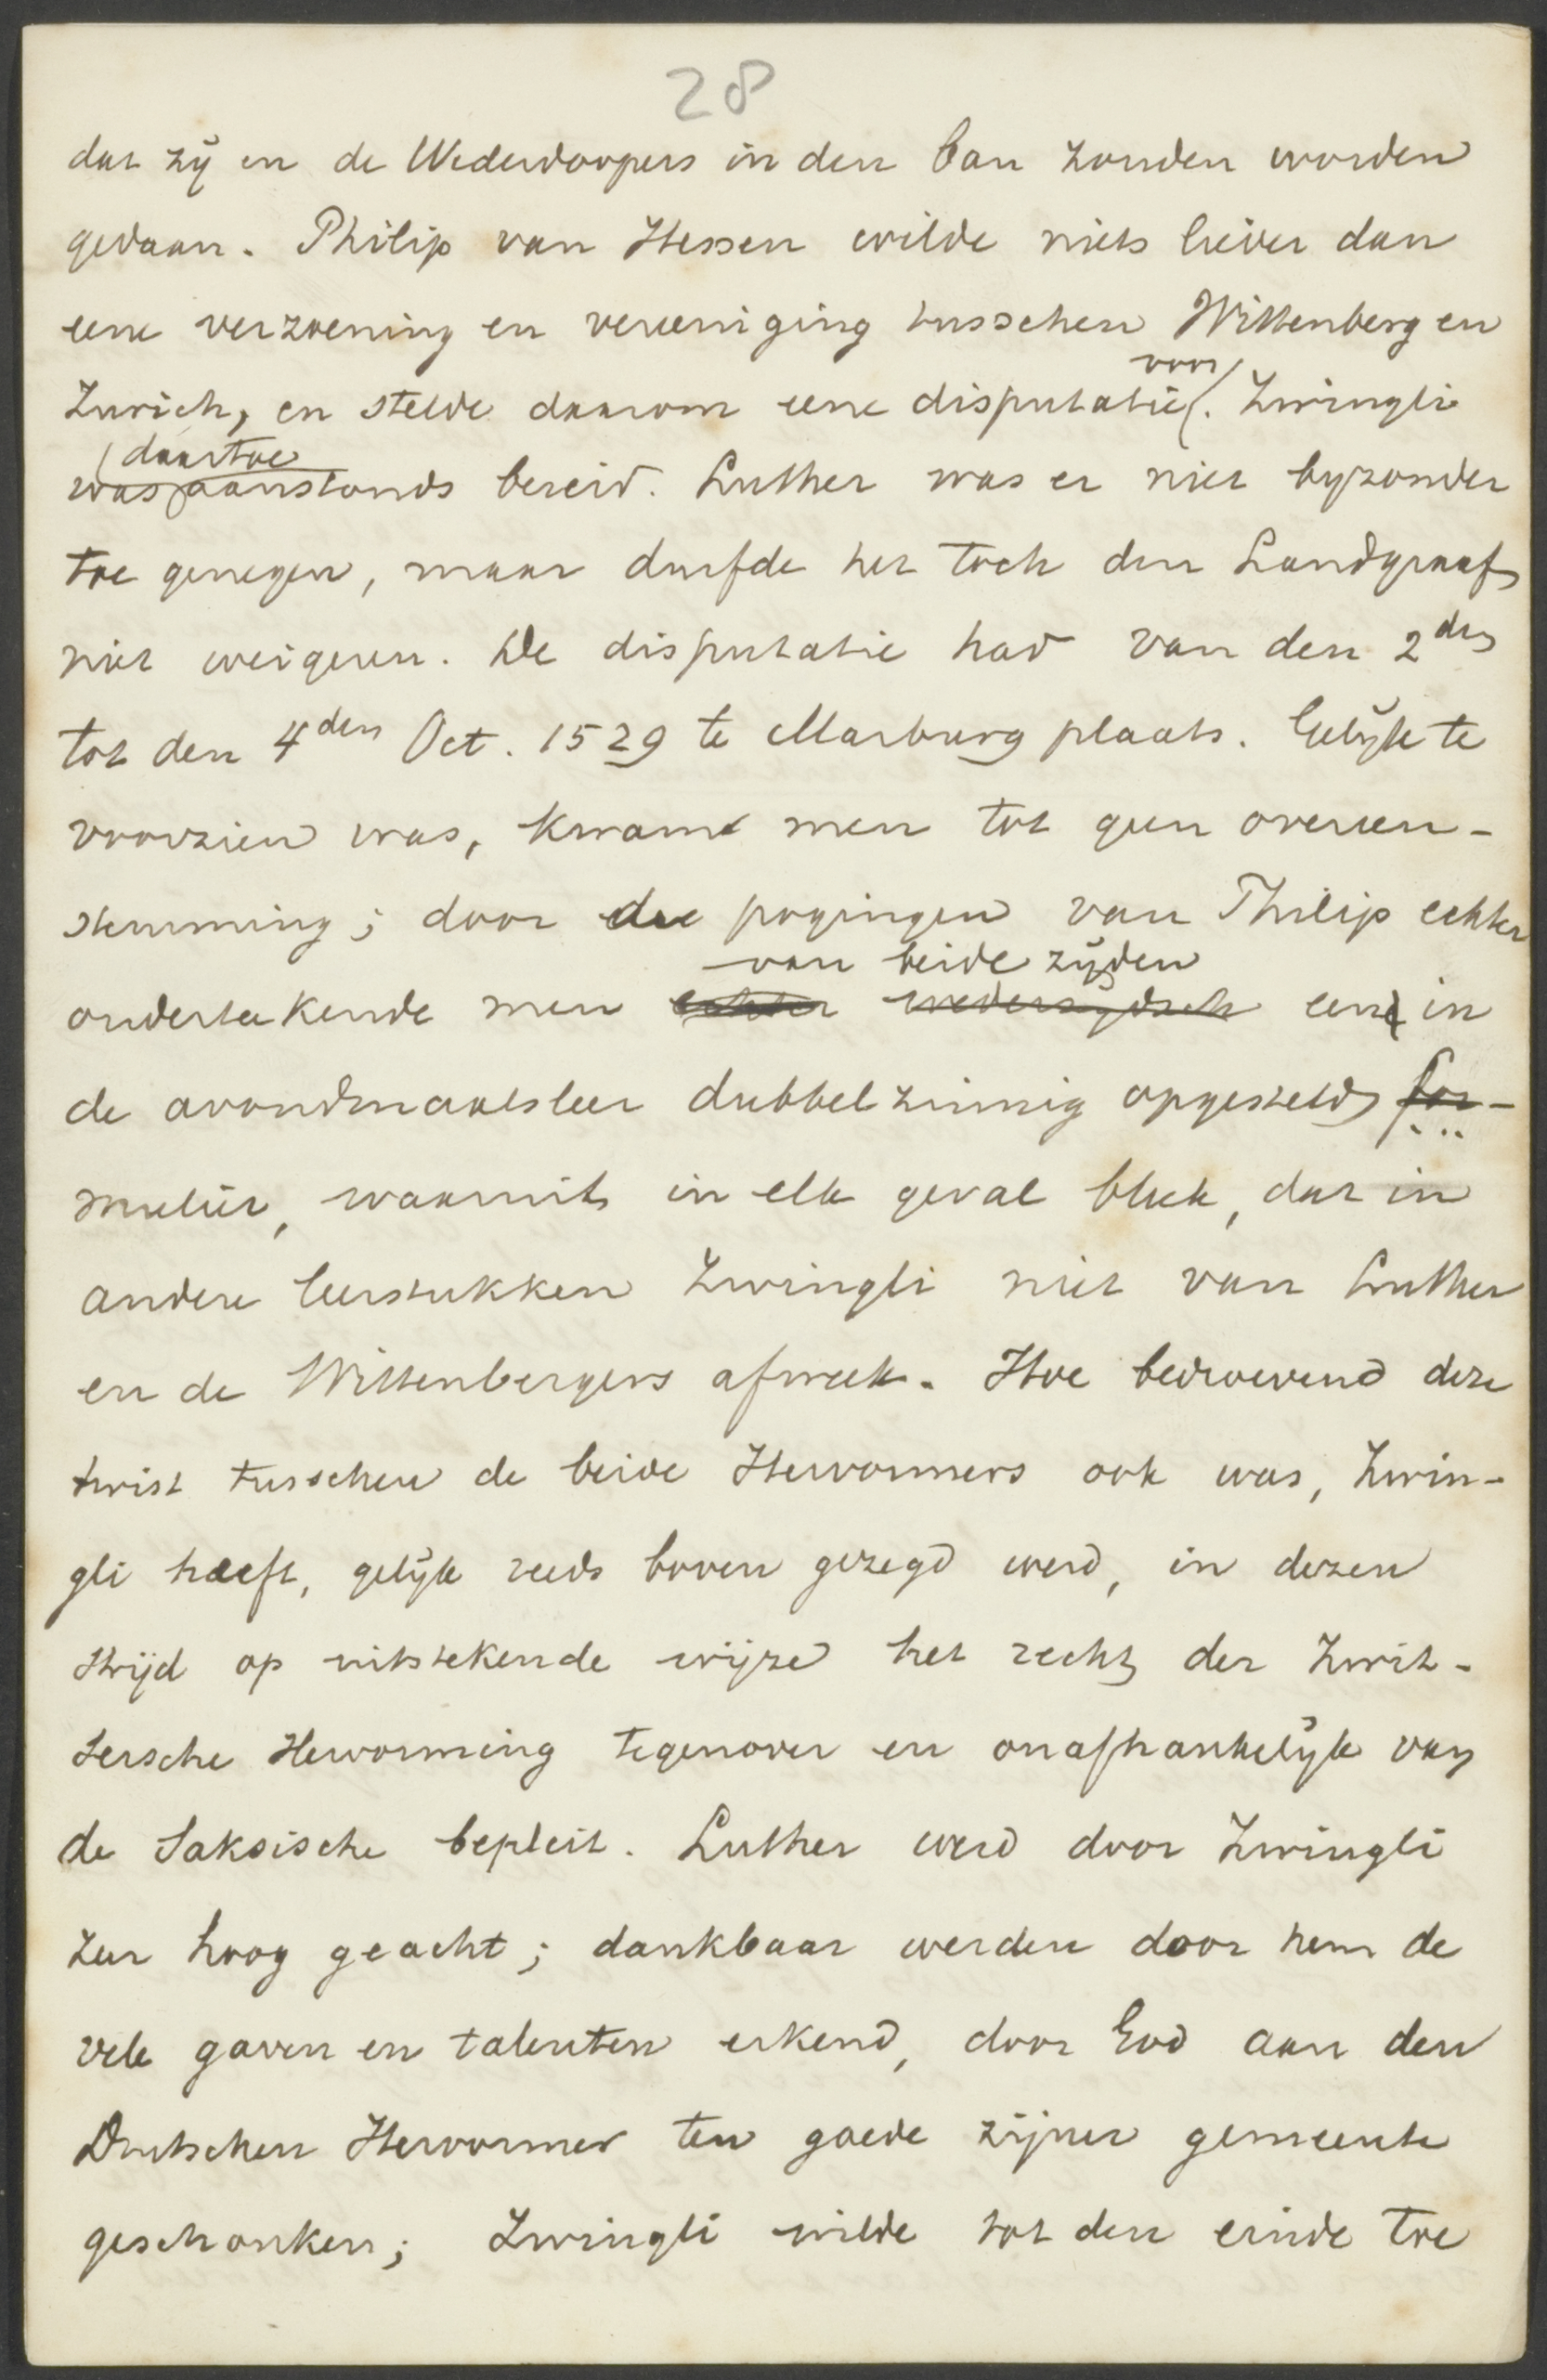 28
dat zij en de Wederdoopers in den ban zouden worden
gedaan. Philip van Hessen wilde niets liever dan
eene verzoening en vereeniging tusschen Wittenberg en
voor
Zurich, en stelde daarom eene disputatie. Zwingli
daartoe
was aanstonds bereid. Luther was er niet byzonder
toe genegen, maar durfde het toch den Landgraaf
niet weigeren. De disputatie had van den 2den
tot den 4den Oct. 1529 te Marburg plaats. Gelijk te
voorzien was, kwam men tot geen overeen-
stemming; door de pogingen van Philip echter
van beide zijden
onderteekende men echter wederzijdsch een in
de avondmaalsleer dubbelzinnig opgesteld for-
mulier, waaruit in elk geval bleek, dat in
andere leerstukken Zwingli niet van Luther
en de Wittenbergers afweek. Hoe bedroevend deze
twist tusschen de beide Hervormers ook was, Zwin-
gli heeft, gelijk reeds boven gezegd werd, in dezen
strijd op uitstekende wijze het recht der Zwit-
sersche Hervorming tegenover en onafhankelijk van
de Saksische bepleit. Luther werd door Zwingli
zeer hoog geacht; dankbaar werden door hem de
vele gaven en talenten erkend, door God aan den
Duitschen Hervormer ten goede zijner gemeente
geschonken; Zwingli wilde tot den einde toe